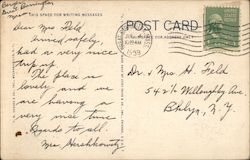 THIS SPACE FOR WRITING MESSAGES
POST CARD
Dear Mrs Feld
Arrived safely,
had a very nice
trip up
The place is
lovely and we
are having a
very nice time
Regards to all.
Mrs. Hershkowitz
1949
Dr. & Mrs H. Feld
542 Willoughby Ave.
Bklyn, N.Y.